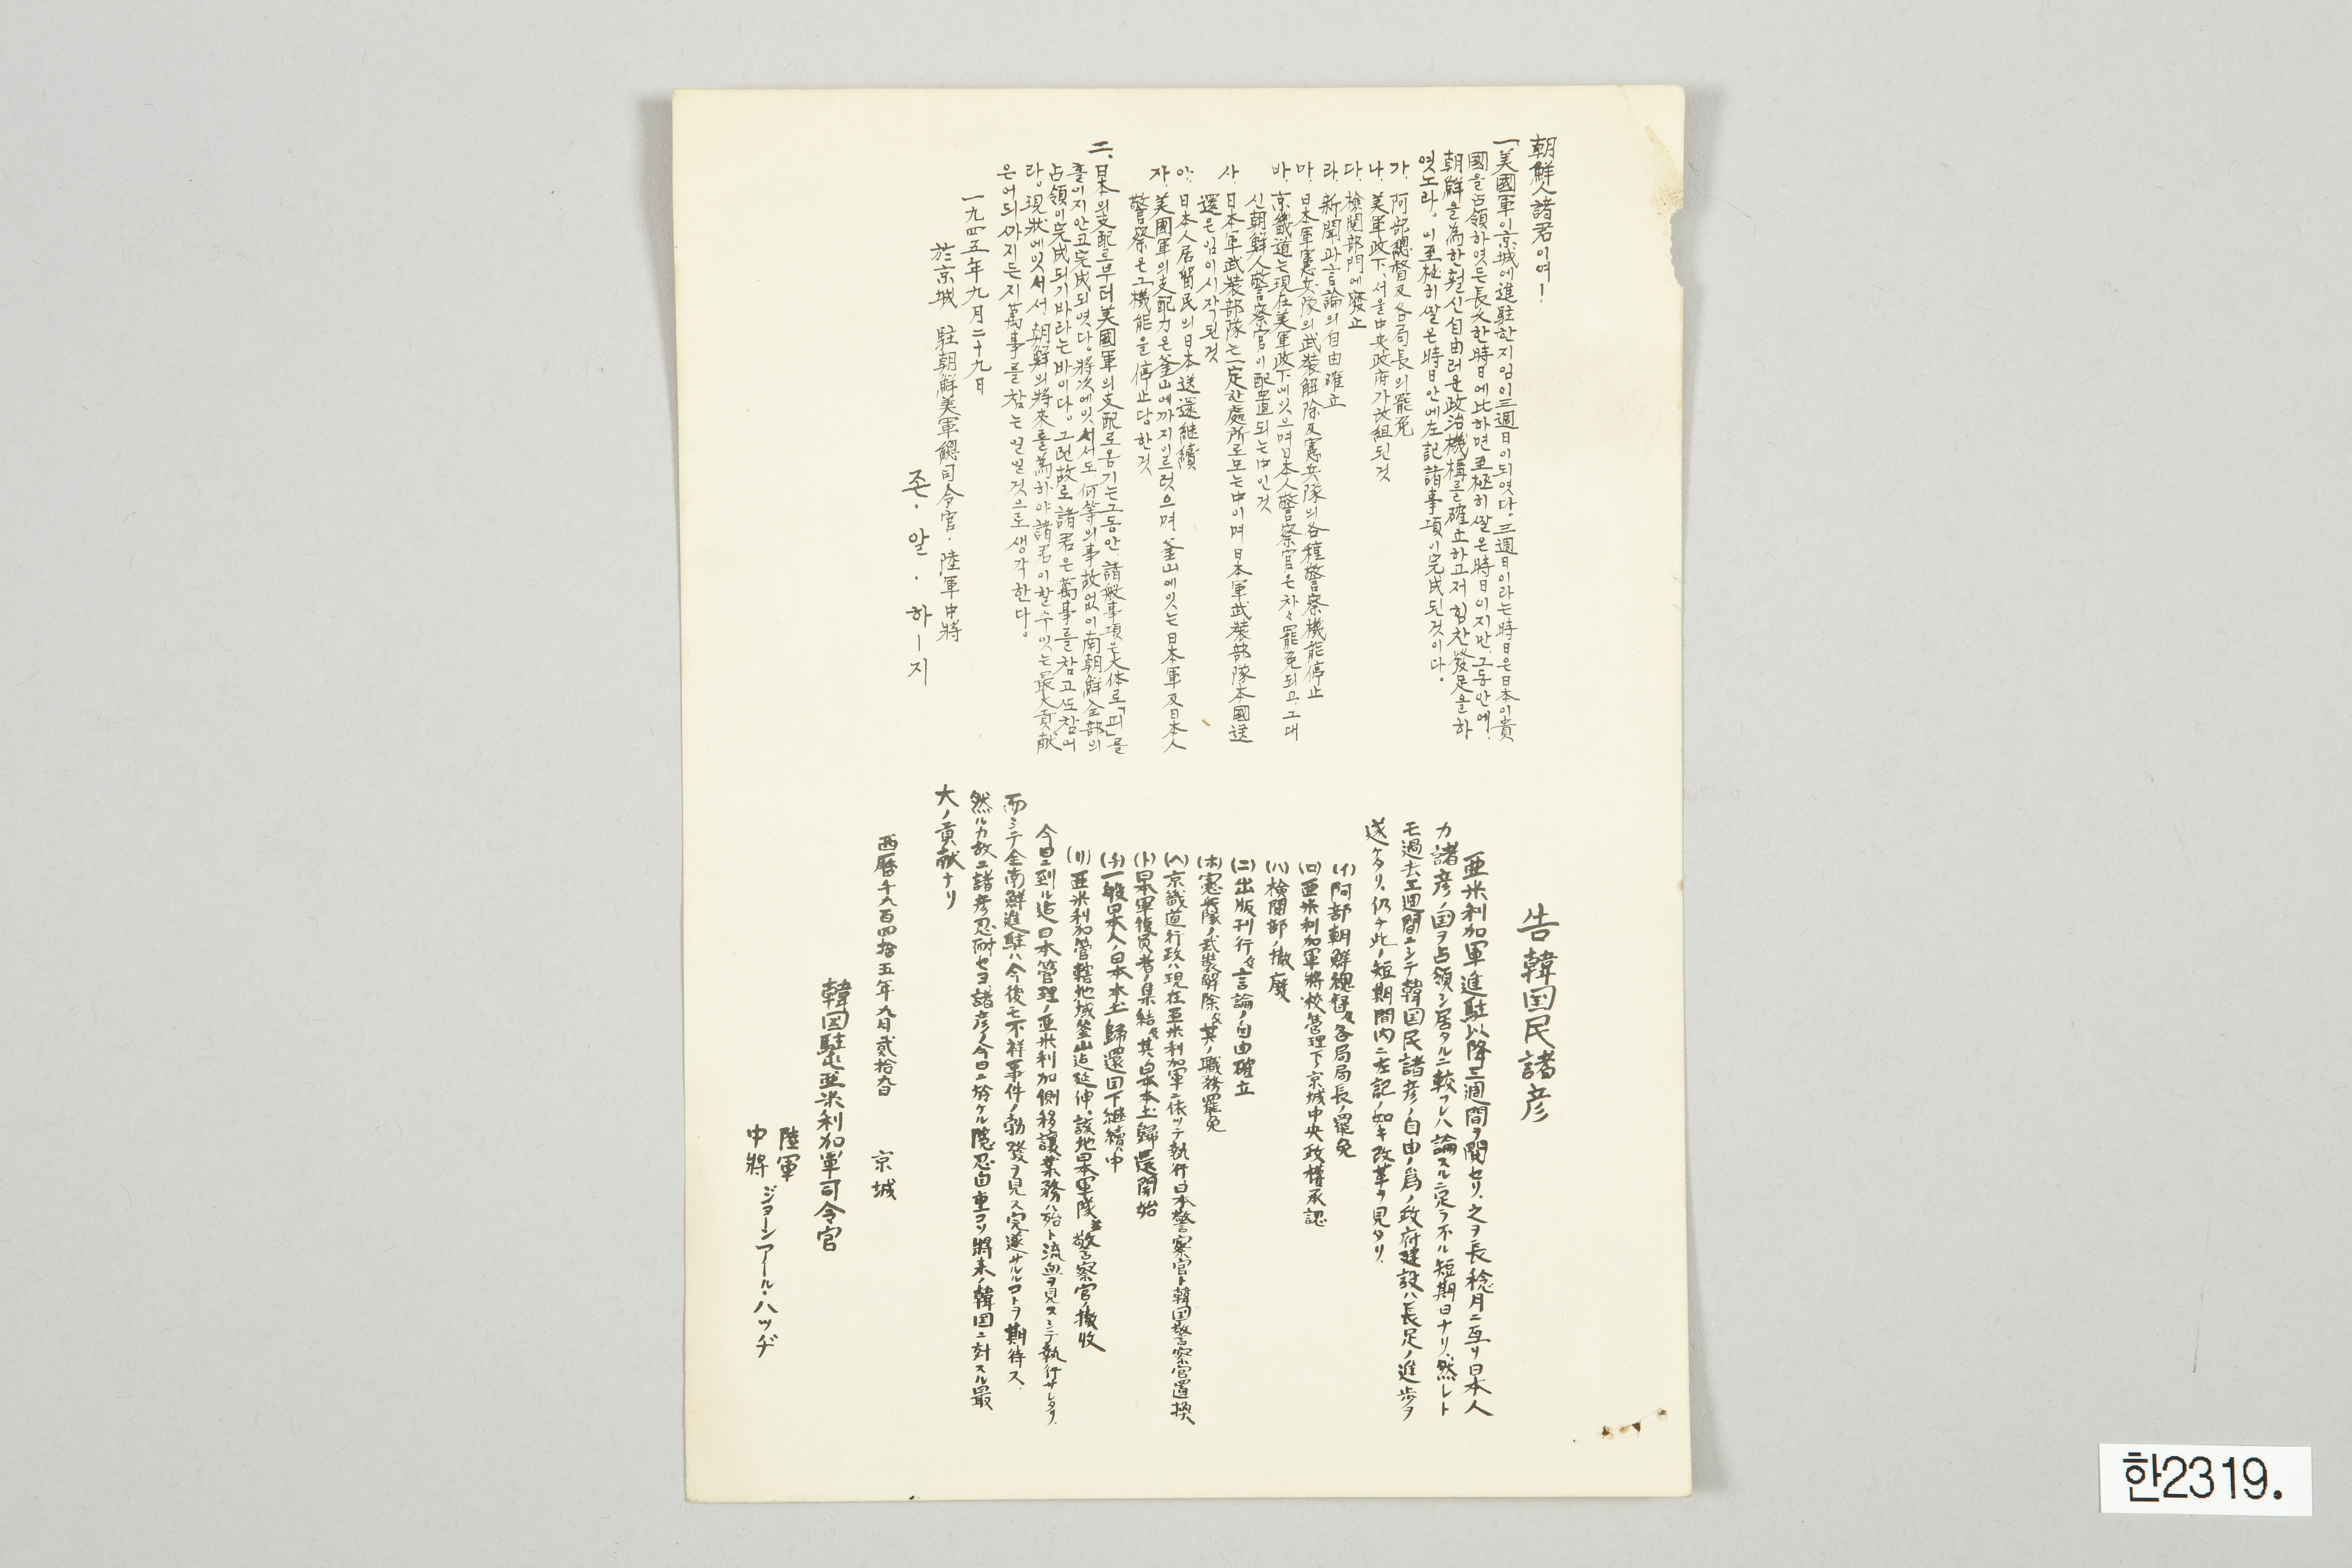 朝鮮人諸君이여!
一、美國軍이京城에進駐한지임이三週日이되엿다。三週日이라는時日은日本이貴
國을占領하엿든長久한時日에比하면至極히짤은時日이지만、그동안에!
朝鮮을為한훨신自由러운政治機構를確立하고저힘찬發足을하
엿노라。이至極히짤은時日안에左記諸事項이完成된것이다。
가. 阿部總督及各局長의罷免
나. 美軍政下、서울中央政府가改組된것
다. 檢閱部門에廢止
라. 新聞과言論의自由確立
마. 日本軍憲兵隊의武裝解除及憲兵隊의各種警察機能停止
바. 京畿道는現在美軍政下에잇으며日本人警察官은차々罷免되고、그대
신朝鮮人警察官이配置되는中인것
사. 日本軍武裝部隊는一定한處所로모는中이며日本軍武裝部隊本國送
還은임이시작된것
아. 日本人居留民의日本送還継續
자. 美國軍의支配力은釜山에까지이르럿으며、釜山에잇는日本軍及日本人
警察은그機能을停止당한것
二、日本의支配로부터美國軍의支配로옴기는그동안、諸般事項은大体로「피」를
흘이지안코完成되엿다。將次에잇서서도、何等의事故없이南朝鮮全部의
占領이完成되기바라는바이다。그런故로諸君은萬事를참고또참어
라。現狀에잇서서、朝鮮의將來를爲하야諸君이할수잇는最大貢献
은어듸까지든지萬事를참는일일것으로생각한다。
一九四五年九月二十九日
於京城 駐朝鮮美軍總司令官·陸軍中將
존·알·하ー지
告韓国民諸彦
亜米利加軍進駐以降三週間ヲ閲セリ、之ヲ長稔月ニ亙リ日本人
カ諸彦ノ国ヲ占領シ居タルニ較フレハ論スルニ足ラホル短期日ナリ、然レト
モ過去三週間ニシテ韓国民諸彦ノ自由ノ爲ノ政府建設ハ長足ノ進歩ヲ
遂ケタリ、仍チ此ノ短期間内ニ左記ノ如キ改革ヲ見タリ、
(イ)阿部朝鮮總督及各局局長ノ罷免
(ロ)亜米利加軍將校管理下京城中央政權承認
(ハ)検閲部ノ撤廢
(ニ)出版刊行及言論ノ自由確立
(ホ)憲兵隊ノ武裝解除及其ノ職務罷免
(ヘ)京畿道行政ハ現在亜米利加軍ニ依ッテ執行日本警察官ト韓国警察官置換
(ト)日本軍復員者ノ集結及其ノ日本本土歸還開始
(チ)一般日本人ノ日本本土歸還目下継續中
(リ)亜米利加管轄地域釜山迄延伸、該地日本軍隊並警察官ノ撤收
今日ニ到ル迄日本管理ノ亜米利加側移讓業務ハ殆ト流血ヲ見スシテ執行サレタリ、
而シテ全南鮮進駐ハ今後モ不祥事件ノ勃發ヲ見ス完遂サルルコトヲ期待ス、
然ルカ故ニ諸彦忍耐セヨ、諸彦ノ今日ニ於ケル隠忍自重コソ將来ノ韓国ニ対スル最
大ノ貢献ナリ
西暦千九百四拾五年九月貳拾九日 京城
韓国駐屯亜米利加軍司令官
陸軍
中將 ジョーンアール・ハッヂ
한2319.